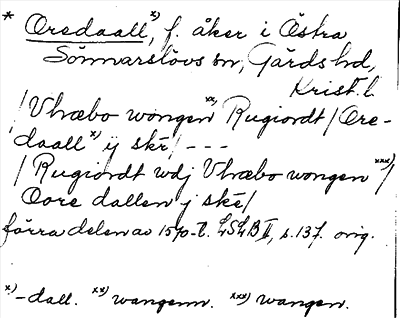 * Oredaall x), f. åker i Östra
Sönnarslövs sn, Gärds hd,
Krist. l.
/Vhræbo wongen xx) Rugiordt/Ore-
daall x) ÿ skē/ ---
/Rugiordt wdj Vhræbo wongen xxx)/
Oore dallen j skē/
förra delen av 1570-t. LSLB II, s. 137. orig.
x) -dall. xx) wangenn. xxx) wangen.